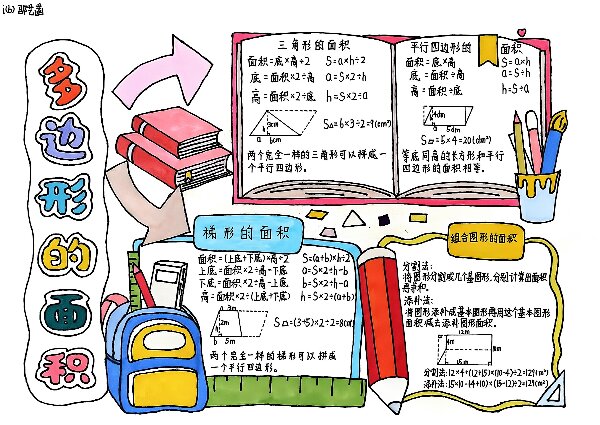 多边形的面积
三角形的面积
面积=底×高÷2 S=a×h÷2
底=面积×2÷高 a=S×2÷h
高=面积×2÷底 h=S×2÷a
3cm
h
a 6cm
S△=6×3÷2=9(cm²)
两个完全一样的三角形可以拼成
一个平行四边形。
平行四边形的面积
面积=底×高 S=a×h
底=面积÷高 a=S÷h
高=面积÷底 h=S÷a
4dm
h
a 5dm
S▱=5×4=20(dm²)
等底同高的长方形和平行
四边形的面积相等。
梯形的面积
面积=(上底+下底)×高÷2 S=(a+b)×h÷2
上底=面积×2÷高-下底 a=S×2÷h-b
下底=面积×2÷高-上底 b=S×2÷h-a
高=面积×2÷(上底+下底) h=S×2÷(a+b)
a 3m
2m
b 5m
=(3+5)×2÷2=8(m²)
两个完全一样的梯形可以拼成
一个平行四边形。
组合图形的面积
分割法:
将图形分割成几个基图形,分别计算出面积
添补法:
将图形添补成基本图形再用这个基本图形
面积-减去添补图形面积。
12m
15m
分割法:12×4+(12+15)×(10-4)÷2=129(m²)
添补法:15×10-(4+10)×(15-12)÷2=129(m²)